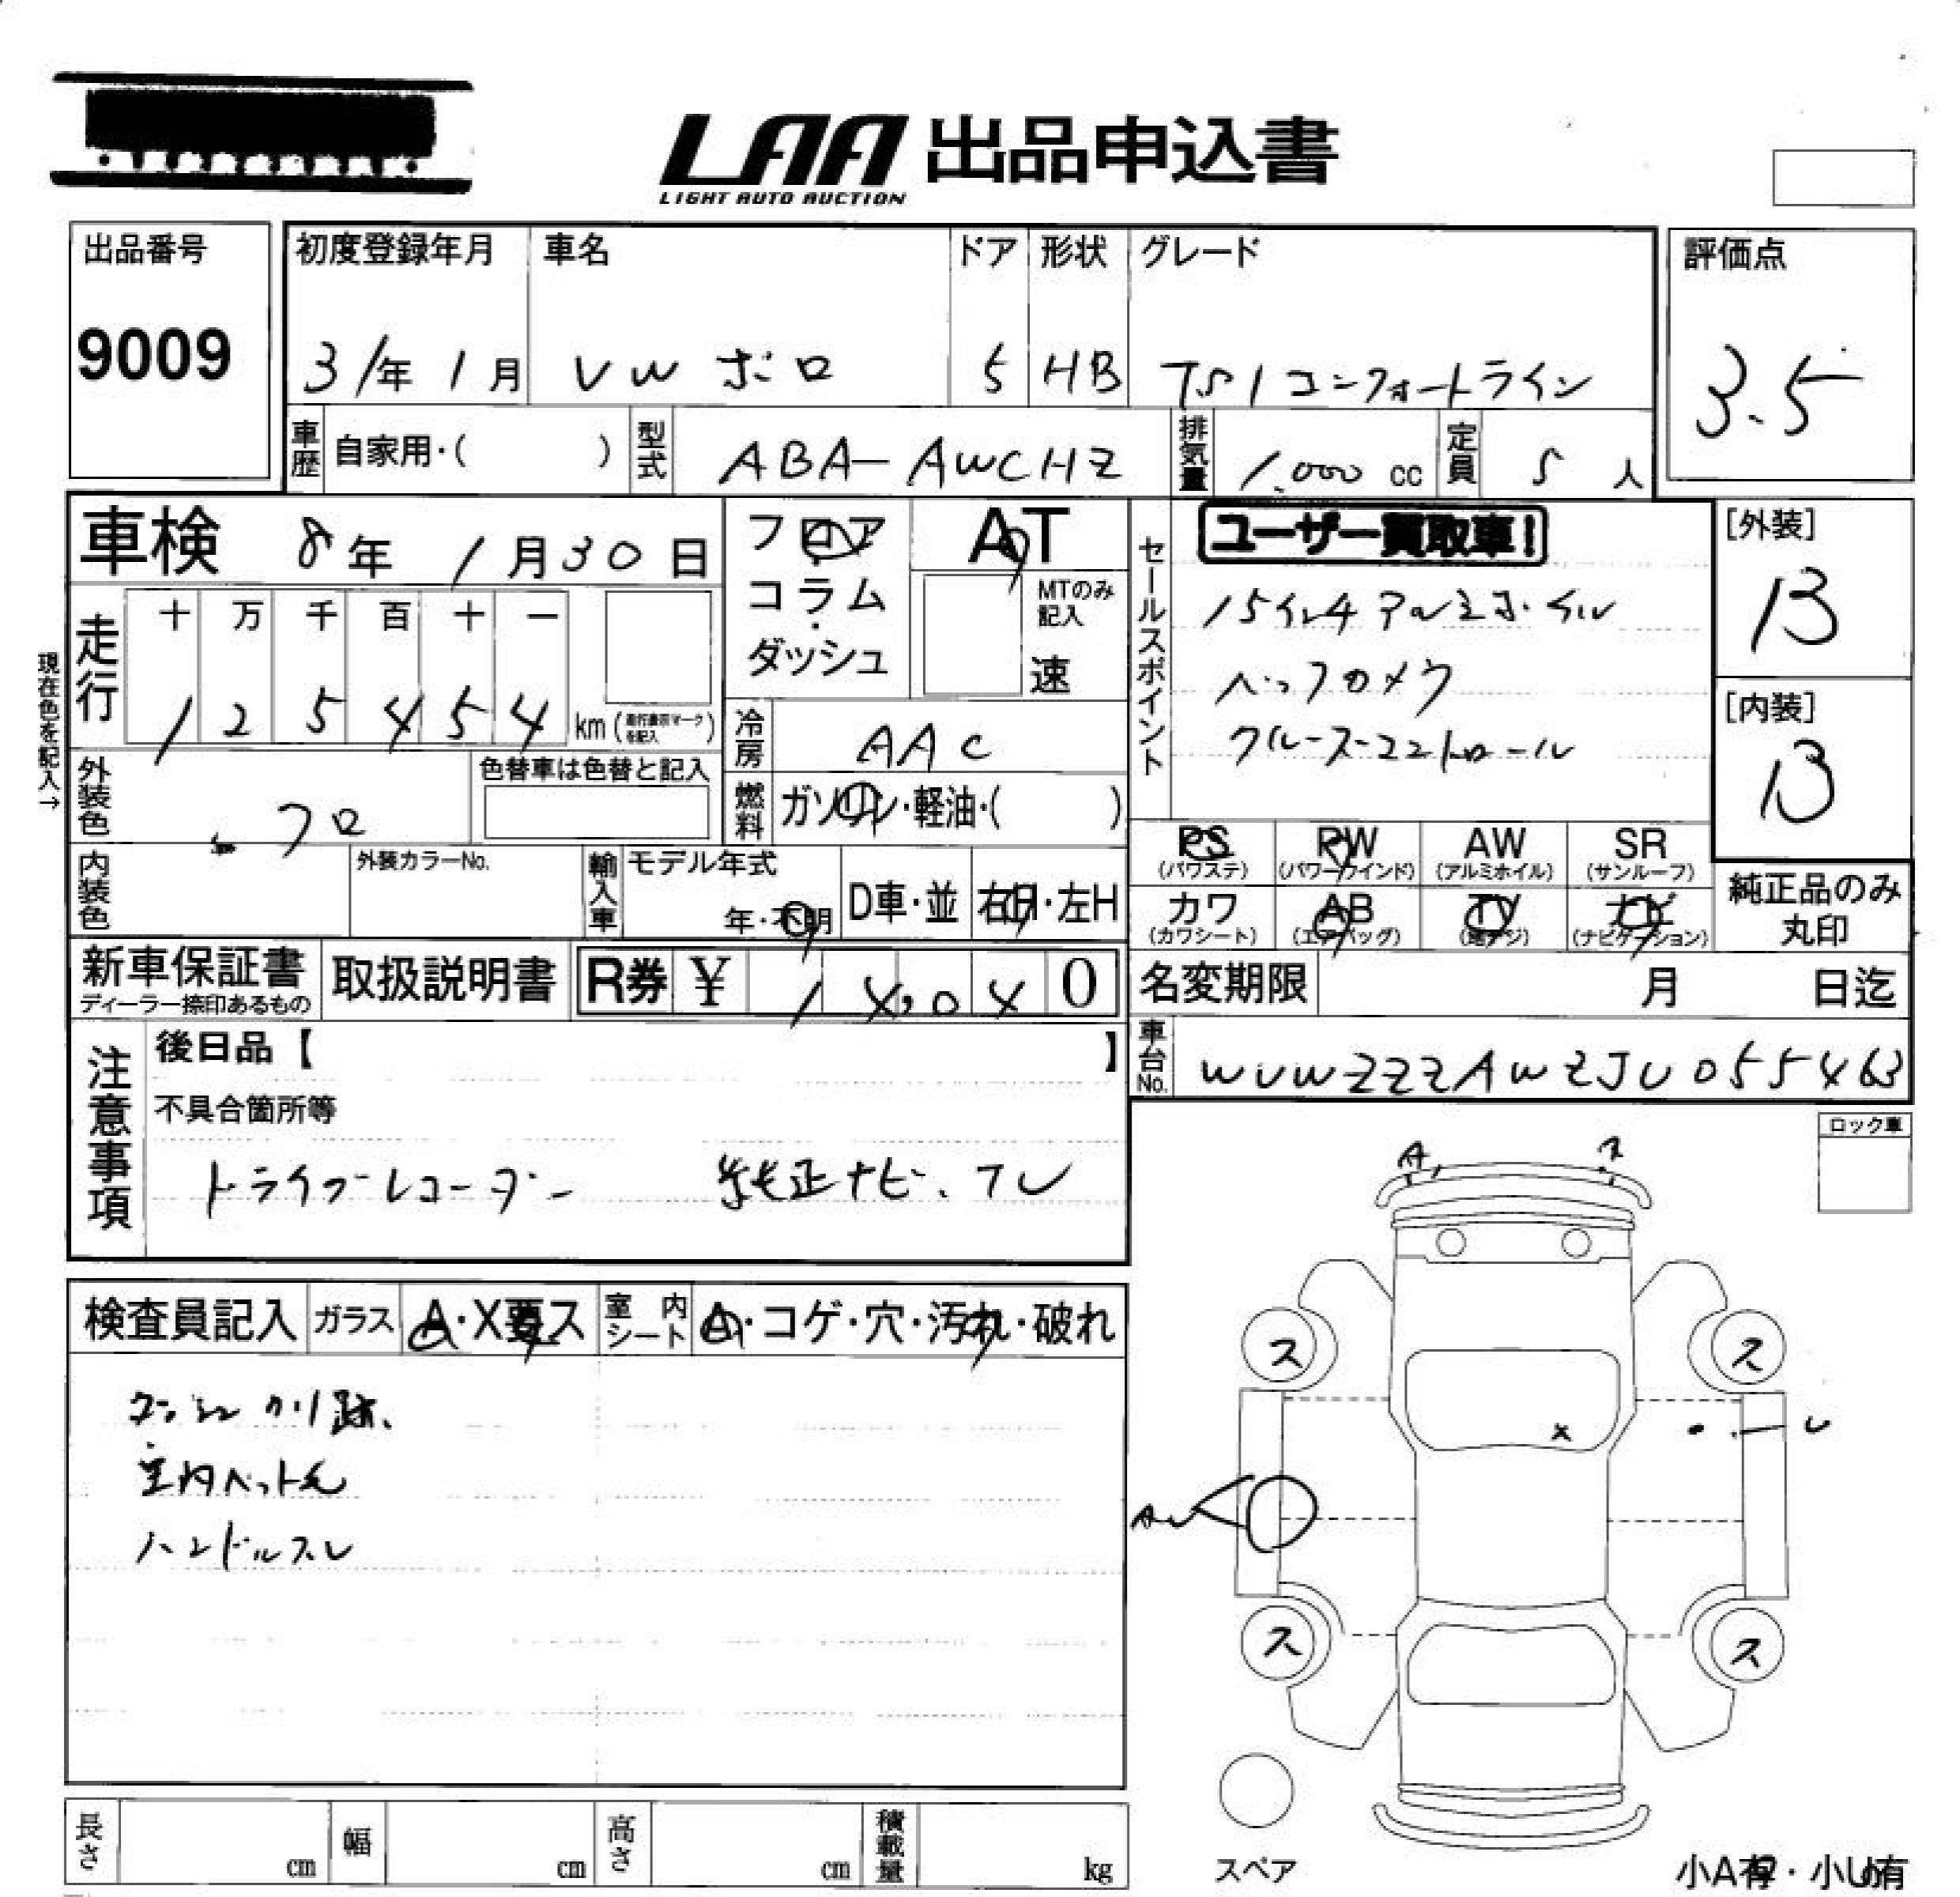 LAA 出品申込書
LIGHT AUTO AUCTION
出品番号
9009
初度登録年月
31年1月
車名
VW ポロ
ドア
5
形状
HB
グレード
TSIコンフォートライン
評価点
3.5
車歴 自家用・( )
型式 ABA-AWCHZ
排気量 1.000 cc
定員 5 人
車検 8年 1月30日
フロア・コラム・ダッシュ
AT
MTのみ記入
速
セールスポイント
ユーザー買取車!
15インチアルミホイル
バックカメラ
クルーズコントロール
[外装]
B
[内装]
B
現在色を記入→
走行
十 万 千 百 十 一
1 2 5 4 5 4 km (走行表示マークを記入)
冷房 AAC
外装色 クロ
色替車は色替と記入
燃料 ガソリン・軽油・( )
内装色
外装カラーNo.
輸入車
モデル年式
年・不明
D車・並
右H・左H
PS (パワステ)
PW (パワーウインド)
AW (アルミホイル)
SR (サンルーフ)
カワ (カワシート)
AB (エアバッグ)
TV (地デジ)
ナビ (ナビゲーション)
純正品のみ丸印
新車保証書
ディーラー捺印あるもの
取扱説明書
R券 ¥ 1 0 0
名変期限 月 日迄
車台No. WVWZZZAWZJU055463
注意事項
後日品【 】
不具合箇所等
ドライブレコーダー 純正ナビ、TV
ロック車
検査員記入
ガラス A・X要ス
室内シート A・コゲ・穴・汚れ・破れ
跡、
室内ペット毛
ハンドルスレ
A
ス ス
X
U
AU
ス ス
スペア
小A有・小U有
長さ cm
幅 cm
高さ cm
積載量 kg